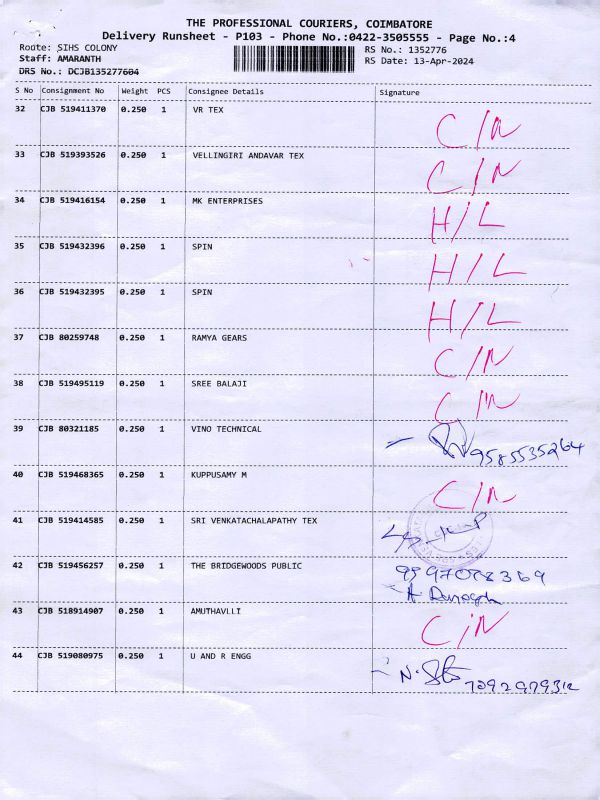 THE PROFESSIONAL COURIERS, COIMBATORE
Delivery Runsheet - P103 - Phone No.:0422-3505555 - Page No.:4
Route: SIHS COLONY RS No.: 1352776
Staff: AMARANTH RS Date: 13-Apr-2024
DRS No.: DCJB135277604
S No Consignment No Weight PCS Consignee Details Signature
32 CJB 519411370 0.250 1 VR TEX C/N
33 CJB 519393526 0.250 1 VELLINGIRI ANDAVAR TEX C/N
34 CJB 519416154 0.250 1 MK ENTERPRISES H/L
35 CJB 519432396 0.250 1 SPIN H/L
36 CJB 519432395 0.250 1 SPIN H/L
37 CJB 80259748 0.250 1 RAMYA GEARS C/N
38 CJB 519495119 0.250 1 SREE BALAJI C/N
39 CJB 80321185 0.250 1 VINO TECHNICAL 9585535264
40 CJB 519468365 0.250 1 KUPPUSAMY M C/N
41 CJB 519414585 0.250 1 SRI VENKATACHALAPATHY TEX
42 CJB 519456257 0.250 1 THE BRIDGEWOODS PUBLIC
43 CJB 518914907 0.250 1 AMUTHAVLLI C/N
44 CJB 519080975 0.250 1 U AND R ENGG